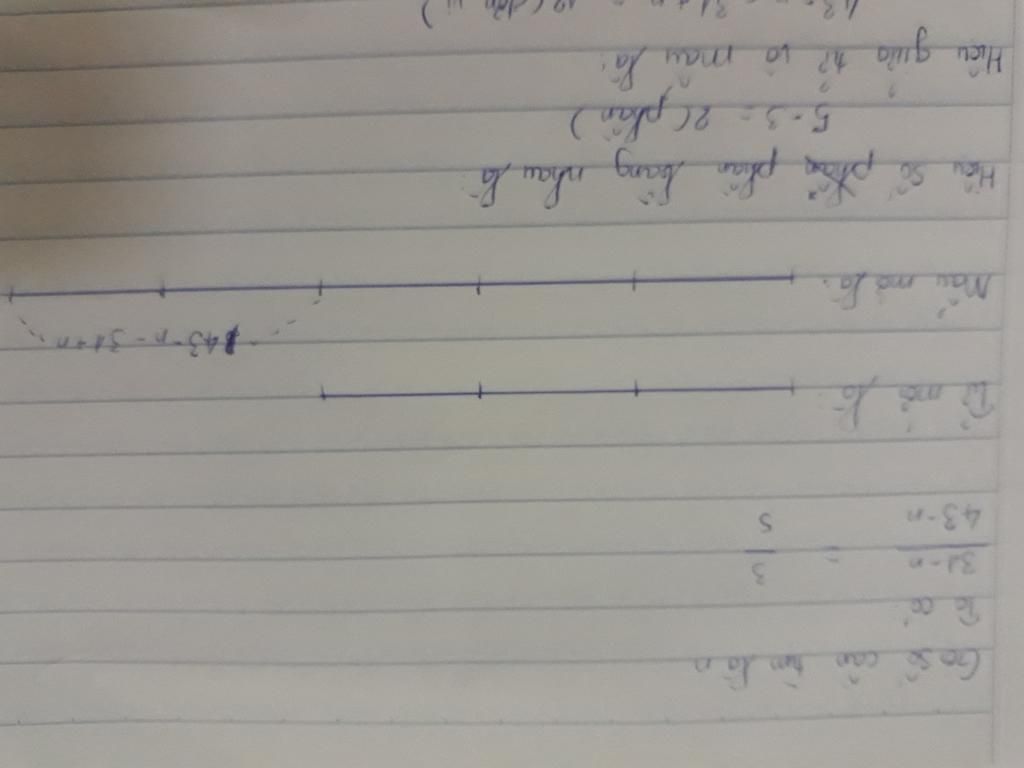 Gọi số cần tìm là n
Ta có
31-n / 43-n = 3 / 5
Tử mới là:
43-n-31+n
Mẫu mới là:
Hiệu số phần phần bằng nhau là:
5-3 = 2 (phần)
Hiệu giữa tử và mẫu là:
43-n-31+n = 12 (đơn vị)